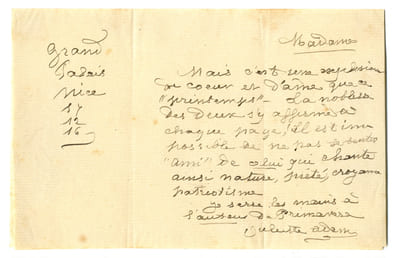 Grand
Palais
Nice
17
12
16
Madame
Mais c'est une explosion
de coeur et d'âme que ce
"printemps" - La noblesse
des deux s'y affirme à
chaque page! Il est im
possible de ne pas se sentir
"ami" de celui qui chante
ainsi nature, piété, croyance
patriotisme
je serre les mains à
l'auteur de Primavera
Juliette Adam